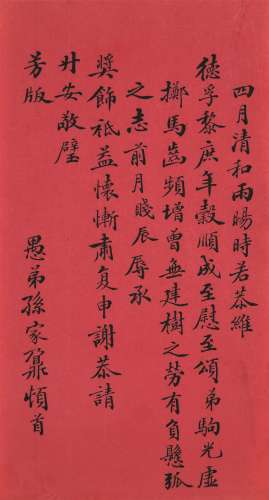 四月清和雨暘時若恭維
德孚黎庶年穀順成至慰至頌弟駒光虛
擲馬齒頻增曾無建樹之勞有負懸弧
之志前月賤辰辱承
獎飾祗益懷慚肅复申謝恭請
升安敬璧
芳版
愚弟孫家鼐頓首